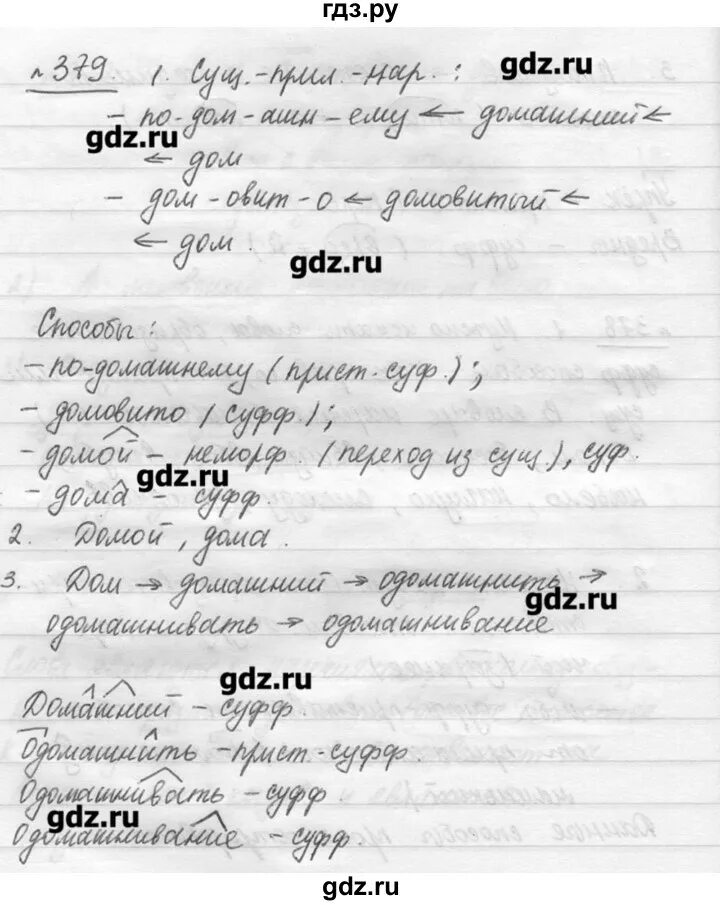 гдз.ру
№379. 1. Сущ.-прил.-нар. :
gdz.ru
– по-дом-ашн-ему ← домашний ←
gdz.ru
← дом
– дом-овит-о ← домовитый ←
← дом.
gdz.ru
Способы:
– по-домашнему (прист. суф.);
– домовито (суфф.);
– домой – неморф. (переход из сущ.), суф.
gdz.ru
– дома – суфф.
2. Домой, дома.
3. Дом → домашний → одомашнить →
gdz.ru
одомашнивать → одомашнивание
gdz.ru
Домашний – суфф.
Одомашнить – прист.-суфф.
Одомашнивать – суфф
gdz.ru
Одомашнивание – суфф.
gdz.ru